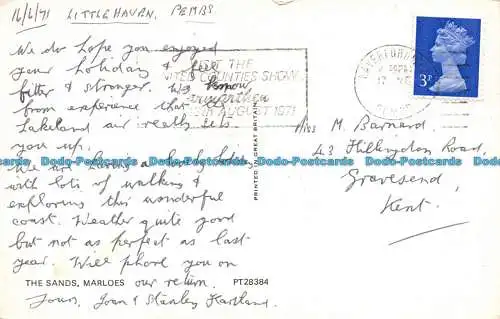 16/6/71 LITTLEHAVEN, PEMBS
We do hope you enjoyed
your holiday & feel
fitter & stronger. We know
from experience that
Lakeland air really sets
you up.
We are having a lovely time
with lots of walking &
exploring this wonderful
coast. Weather quite good
but not as perfect as last
year. Will phone you on
our return.
Yours, Joan & Stanley
THE SANDS, MARLOES
PT28384
VISIT THE
UNITED COUNTIES SHOW
AUGUST 1971
HAVERFORDWEST
3P
PRINTED IN GREAT BRITAIN
Miss M. Barnard,
43 Hillingdon Road,
Gravesend,
Kent.
Dodo-Postcards Dodo-Postcards Dodo-Postcards Dodo-Postcards Dodo-Postcards